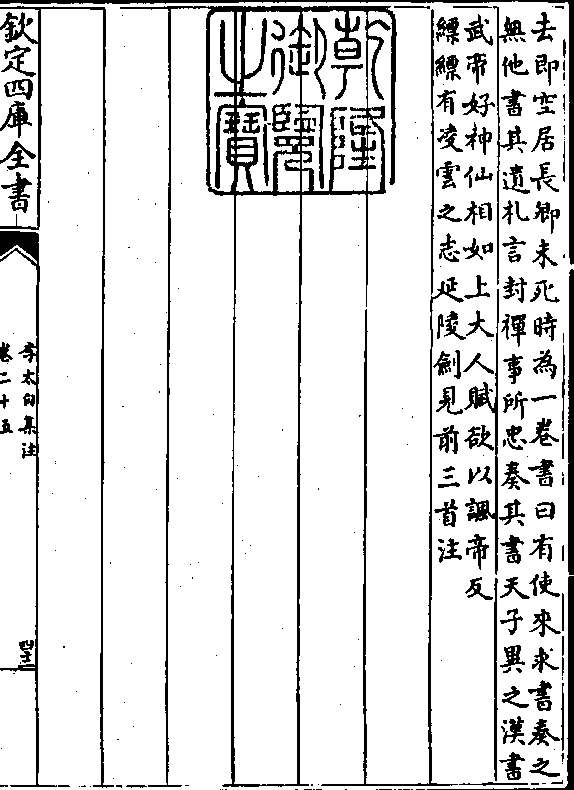 去即空居長卿未死時為一卷書曰有使來求書奏之
無他書其遺札言封禪事所忠奏其書天子異之漢書
武帝好神仙相如上大人賦欲以諷帝反
縹縹有凌雲之志延陵劍見前三首注
乾隆
御覽
之寶
欽定四庫全書
李太白集注
卷二十五